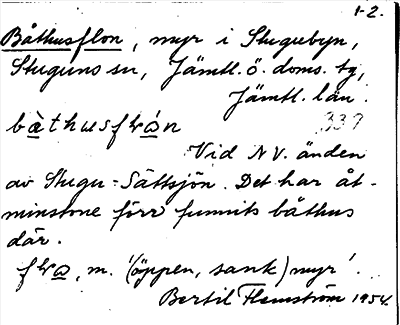 1-2.
Båthusflon, myr i Stugubyn,
Stuguns sn, Jämtl. ö. doms. tg,
Jämtl. län.
337
Vid NV. änden
av Stugu-Sättsjön. Det har åt-
minstone förr funnits båthus
där.
m. '(öppen, sank) myr'.
Bertil Flemström 1954.